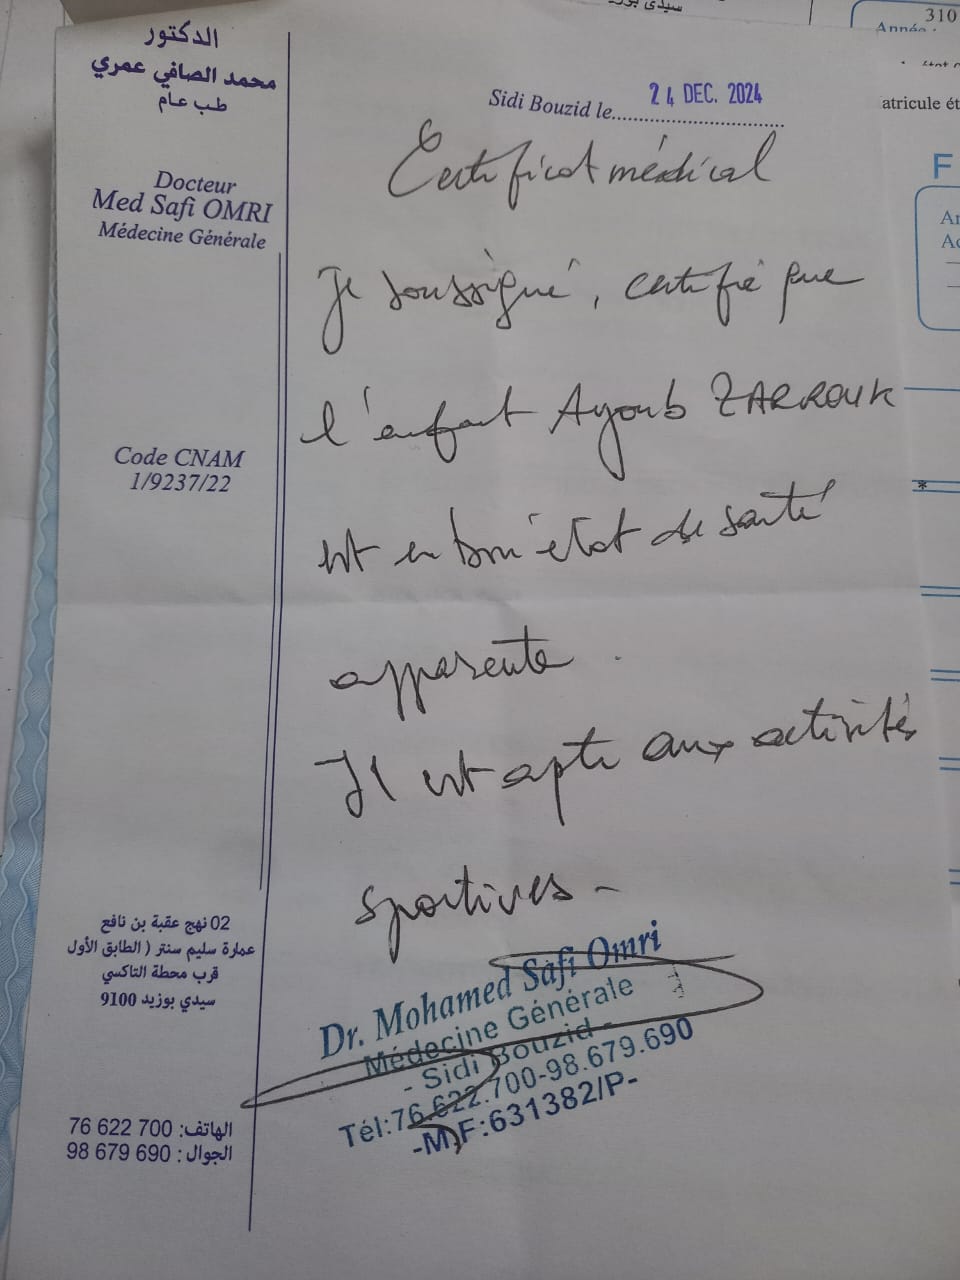 سيدي بوزيد
310
Année :
atricule ét
F
الدكتور
محمد الصافي عمري
طب عام
Docteur
Med Safi OMRI
Médecine Générale
Code CNAM
1/9237/22
Sidi Bouzid le 24 DEC. 2024
Certificat médical
Je soussigné, certifie que
l'enfant Ayoub ZARROUK
est en bon état de santé
apparente.
Il est apte aux activités
sportives -
Dr. Mohamed Safi Omri
Médecine Générale
- Sidi Bouzid -
Tél:76.622.700-98.679.690
-M.F:631382/P-
02 نهج عقبة بن نافع
عمارة سليم سنتر ( الطابق الأول
قرب محطة التاكسي
سيدي بوزيد 9100
الهاتف: 700 622 76
الجوال : 690 679 98